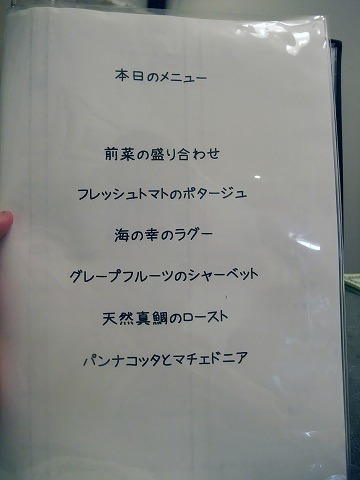 本日のメニュー
前菜の盛り合わせ
フレッシュトマトのポタージュ
海の幸のラグー
グレープフルーツのシャーベット
天然真鯛のロースト
パンナコッタとマチェドニア